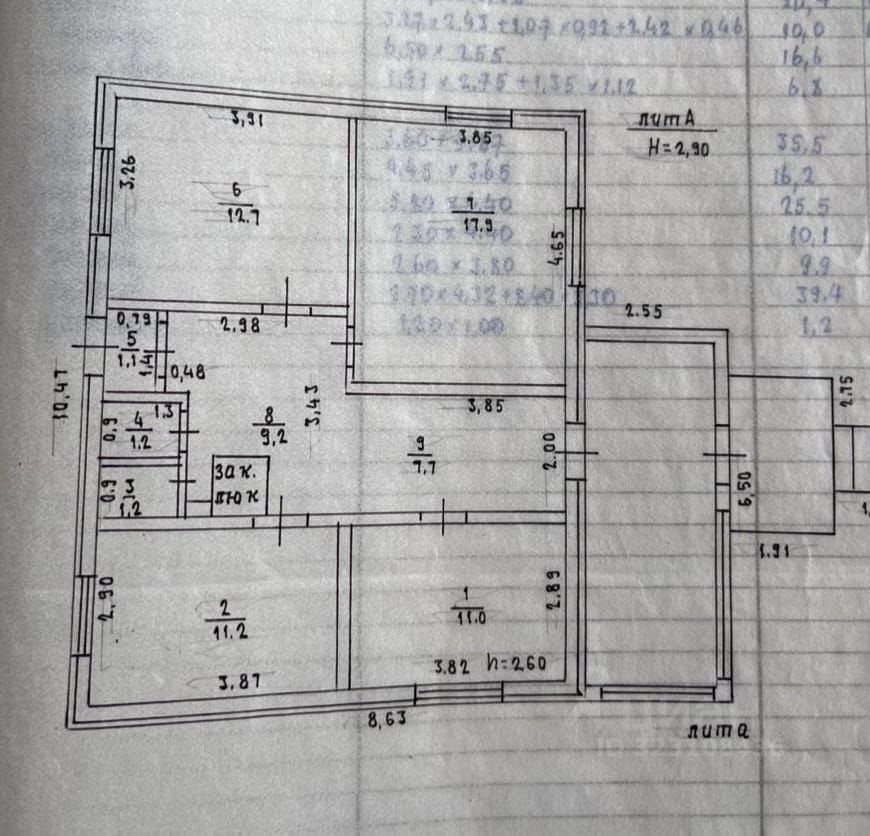 3.27 × 2.43 + 1.07 × 0.92 + 2.42 × 0.46 10,0
6.50 × 2.55 16,6
1.91 × 2.75 + 1.35 × 1.12 6.8
3,91
3.85
лит А
H=2,90
35.5
4.45 × 3.65 16,2
3,26
6
12.7
7
17.9
25.5
10,1
4.65
2.60 × 3.80 9.9
39.4
1.20 × 1.00 1,2
2.55
0,79
2,98
5
1,1
1,41
0,48
10,47
3,43
2.75
1.3
0,9
4
1.2
8
9,2
3,85
9
7,7
2.00
0.9
3
1,2
зак.
люк
6,50
1.91
2,90
2
11.2
1
11.0
2.89
3,87
3.82 h=260
8,63
лит а